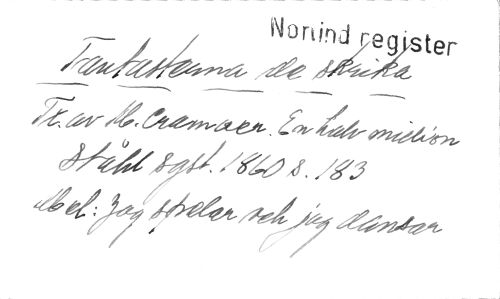 Norlind register
Fantasterna de skrika
Tr. av M. Cramær. En halv million
Ståhl sgst. 1860 s. 183
Mel: Jag spelar och jag dansar